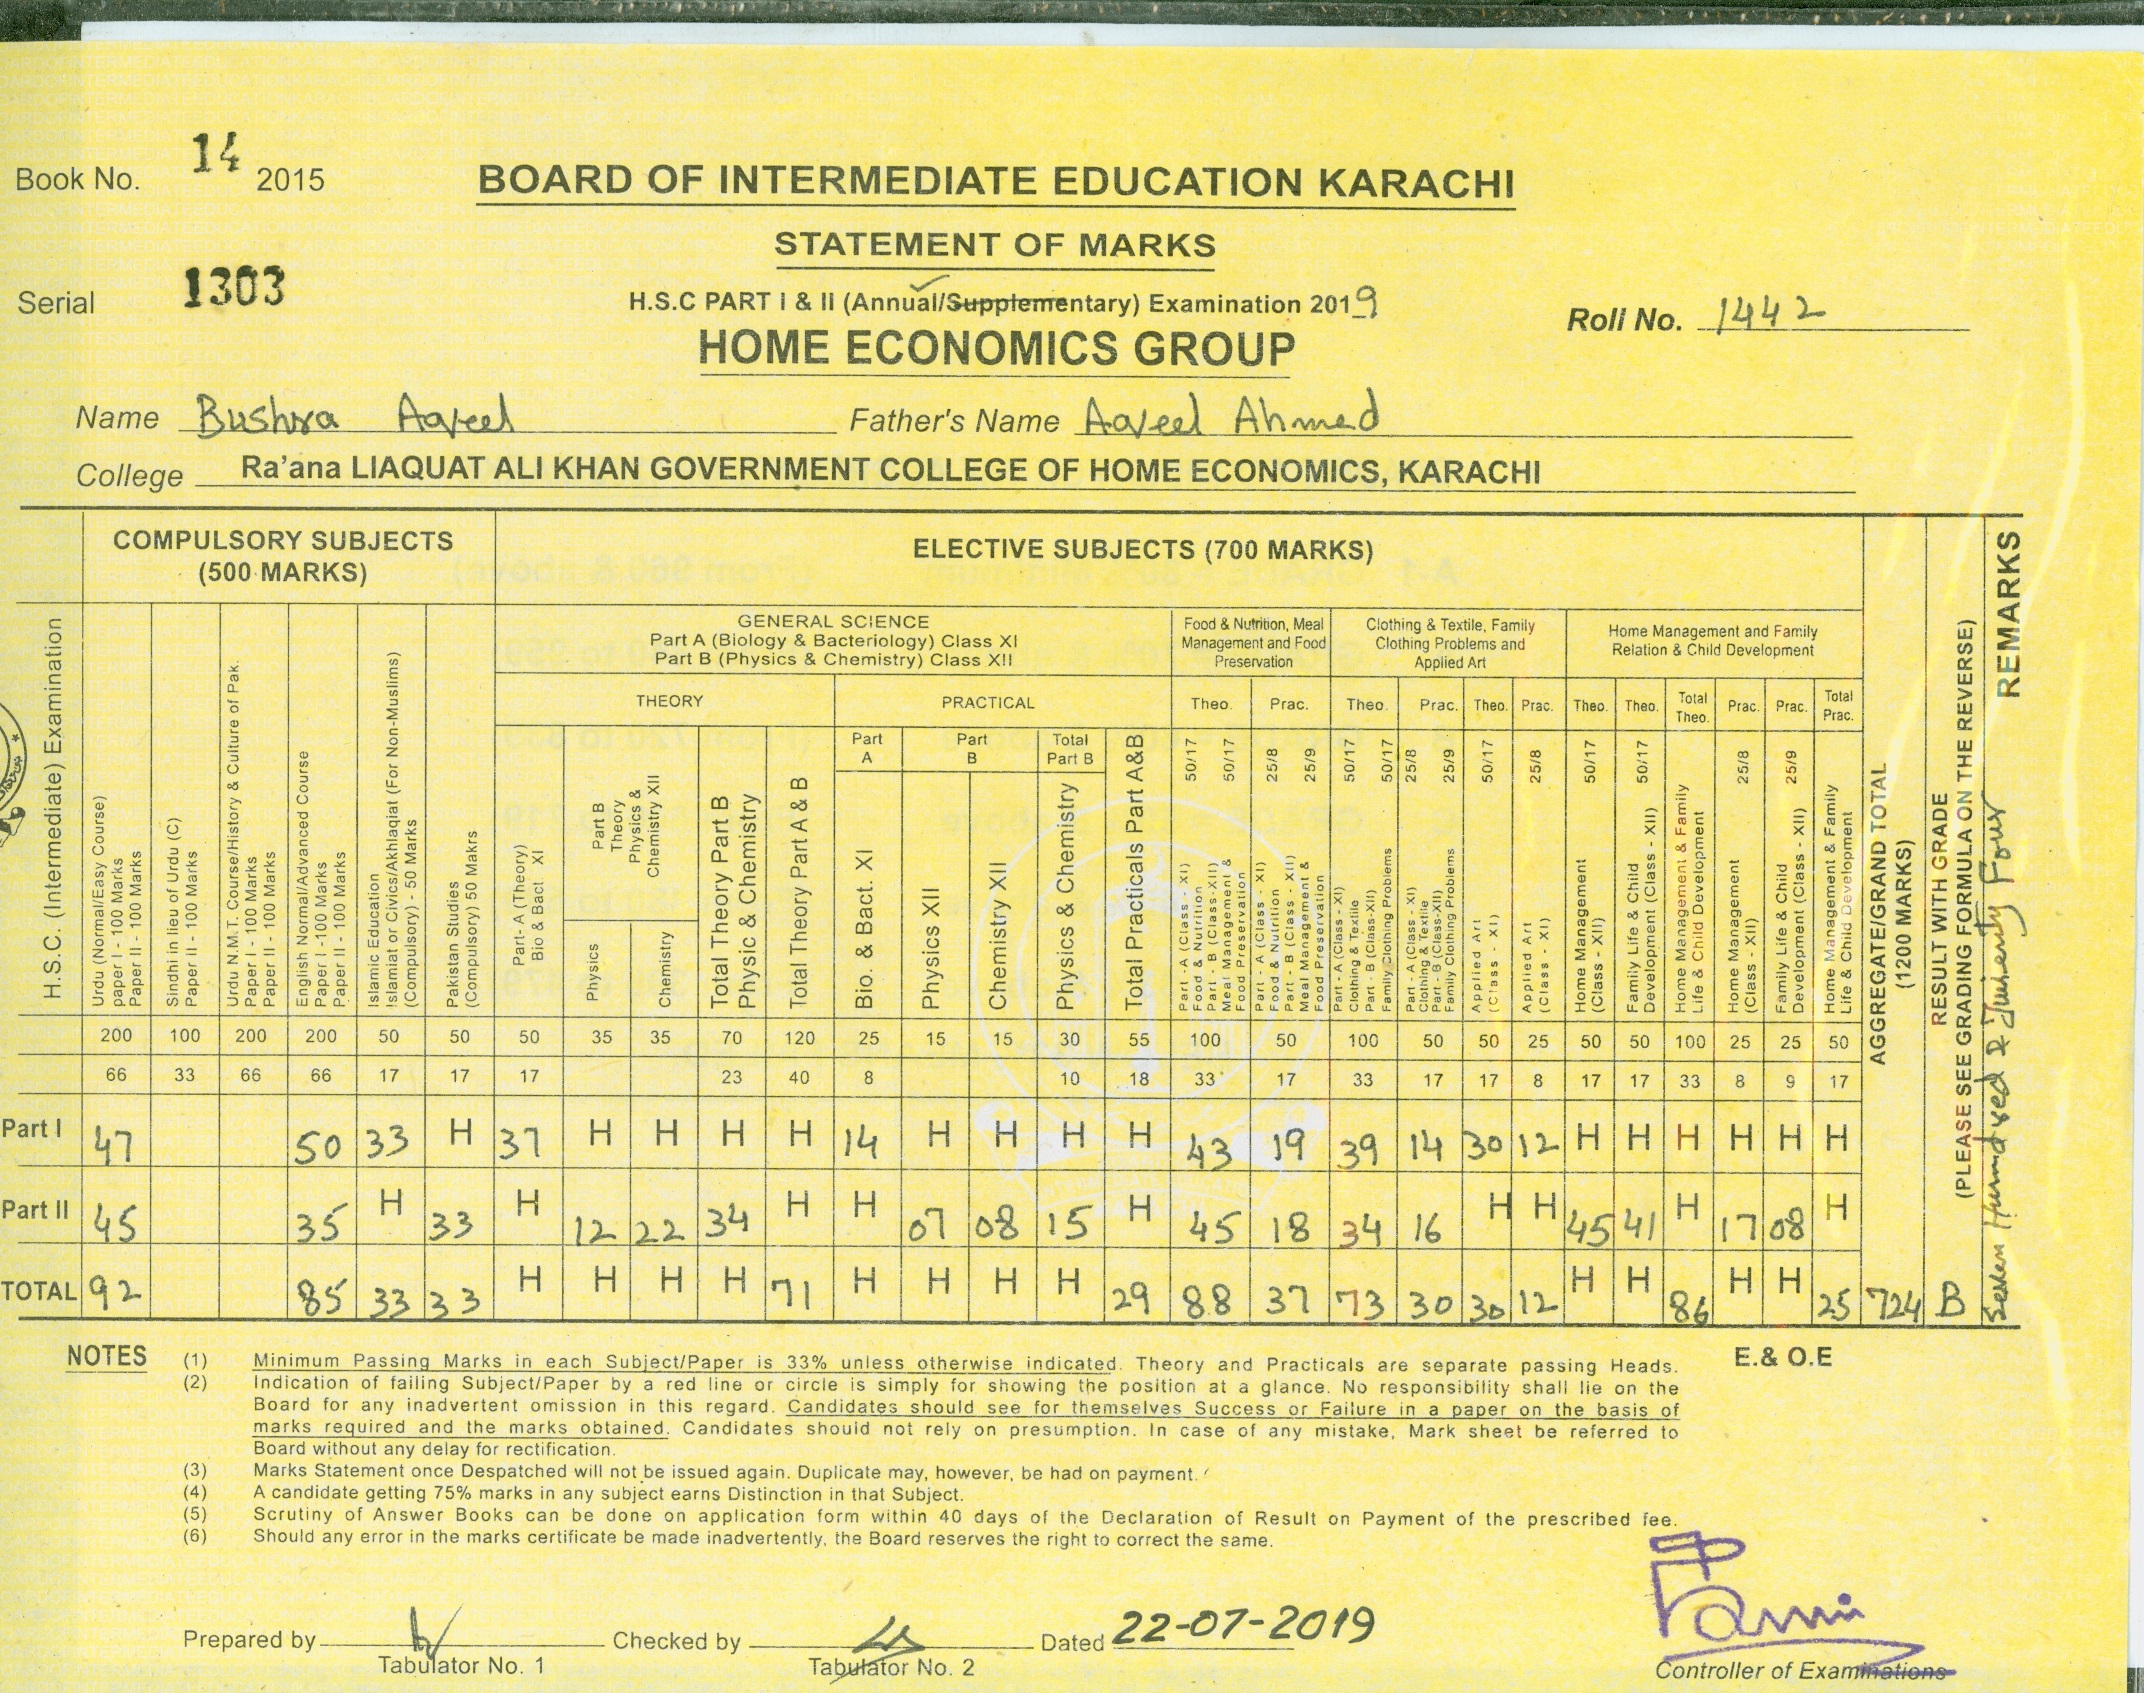 Book No. 14 2015
BOARD OF INTERMEDIATE EDUCATION KARACHI
STATEMENT OF MARKS
Serial 1303
H.S.C PART I & II (Annual/Supplementary) Examination 2019
Roll No. 1442
HOME ECONOMICS GROUP
Name Bushra Aqeel Father's Name Aqeel Ahmed
College Ra'ana LIAQUAT ALI KHAN GOVERNMENT COLLEGE OF HOME ECONOMICS, KARACHI
H.S.C. (Intermediate) Examination
COMPULSORY SUBJECTS
(500 MARKS)
ELECTIVE SUBJECTS (700 MARKS)
AGGREGATE/GRAND TOTAL
(1200 MARKS)
RESULT WITH GRADE
(PLEASE SEE GRADING FORMULA ON THE REVERSE)
REMARKS
Seven Hundred & Twenty Four
GENERAL SCIENCE
Part A (Biology & Bacteriology) Class XI
Part B (Physics & Chemistry) Class XII
Food & Nutrition, Meal
Management and Food
Preservation
Clothing & Textile, Family
Clothing Problems and
Applied Art
Home Management and Family
Relation & Child Development
THEORY PRACTICAL Theo. Prac. Theo. Prac. Theo. Prac. Theo. Theo. Total Theo. Prac. Prac. Total Prac.
Part A Part B Total Part B
50/17 50/17 25/8 25/9 50/17 50/17 25/8 25/9 50/17 25/8 50/17 50/17 25/8 25/9
Urdu (Normal/Easy Course)
paper I - 100 Marks
Paper II - 100 Marks
Sindhi in lieu of Urdu (C)
Paper II - 100 Marks
Urdu N.M.T. Course/History & Culture of Pak.
Paper I - 100 Marks
Paper II - 100 Marks
English Normal/Advanced Course
Paper I -100 Marks
Paper II - 100 Marks
Islamic Education
Islamiat or Civics/Akhlaqiat (For Non-Muslims)
(Compulsory) - 50 Marks
Pakistan Studies
(Compulsory) 50 Makrs
Part- A (Theory)
Bio & Bact. XI
Part B
Theory
Physics &
Chemistry XII
Physics
Chemistry
Total Theory Part B
Physic & Chemistry
Total Theory Part A & B
Bio. & Bact. XI
Physics XII
Chemistry XII
Physics & Chemistry
Total Practicals Part A&B
Part - A (Class - XI)
Food & Nutrition
Part - B (Class-XII)
Meal Management &
Food Preservation
Part - A (Class - XI)
Food & Nutrition
Part - B (Class - XII)
Meal Management &
Food Preservation
Part - A (Class - XI)
Clothing & Textile
Part - B (Class-XII)
Family Clothing Problems
Part - A (Class - XI)
Clothing & Textile
Part - B (Class-XII)
Family Clothing Problems
Applied Art
(Class - XI)
Applied Art
(Class - XI)
Home Management
(Class - XII)
Family Life & Child
Development (Class - XII)
Home Management & Family
Life & Child Development
Home Management
(Class - XII)
Family Life & Child
Development (Class - XII)
Home Management & Family
Life & Child Development
200 100 200 200 50 50 50 35 35 70 120 25 15 15 30 55 100 50 100 50 50 25 50 50 100 25 25 50
66 33 66 66 17 17 17 23 40 8 10 18 33 17 33 17 17 8 17 17 33 8 9 17
Part I 47 50 33 H 37 H H H H 14 H H H H 43 19 39 14 30 12 H H H H H H
Part II 45 35 H 33 H 12 22 34 H H 07 08 15 H 45 18 34 16 H H 45 41 H 17 08 H
TOTAL 92 85 33 33 H H H H 71 H H H H 29 88 37 73 30 30 12 H H 86 H H 25 724 B
NOTES
E.& O.E
(1) Minimum Passing Marks in each Subject/Paper is 33% unless otherwise indicated. Theory and Practicals are separate passing Heads.
(2) Indication of failing Subject/Paper by a red line or circle is simply for showing the position at a glance. No responsibility shall lie on the
Board for any inadvertent omission in this regard. Candidates should see for themselves Success or Failure in a paper on the basis of
marks required and the marks obtained. Candidates should not rely on presumption. In case of any mistake, Mark sheet be referred to
Board without any delay for rectification.
(3) Marks Statement once Despatched will not be issued again. Duplicate may, however, be had on payment.
(4) A candidate getting 75% marks in any subject earns Distinction in that Subject.
(5) Scrutiny of Answer Books can be done on application form within 40 days of the Declaration of Result on Payment of the prescribed fee.
(6) Should any error in the marks certificate be made inadvertently, the Board reserves the right to correct the same.
Prepared by Checked by Dated 22-07-2019
Tabulator No. 1 Tabulator No. 2 Controller of Examinations